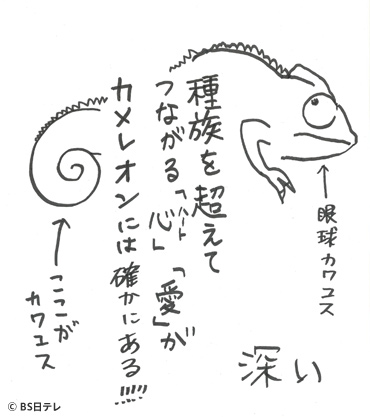 種族を超えて
つながる「心」「愛」が
ハート
カメレオンには確かにある!!!!!
←眼球カワユス
←ここが
カワユス
深い
© BS日テレ